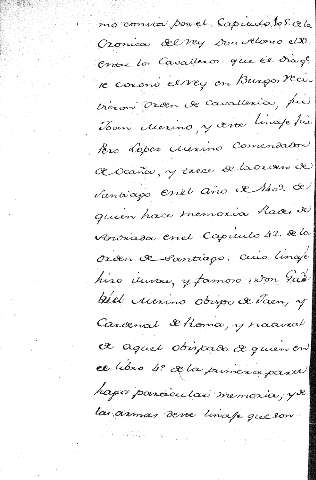 mo consta por el Capitulo 105. de la
Cronica del Rey Don Alonso el XI
entre los Cavalleros que el dia qe.
se coronó el Rey en Burgos re ci-
vieron orden de Cavalleria, fue
Juan Merino, y deste linaje fue
Pero Lopez Merino Comendador
de Ocaña, y trece de la orden de
Santiago en el año de de
quien hace memoria Rades de
Andrada en el Capitulo 42. de la
orden de Santiago. Este linaje
hizo ilustre, y famoso, Don
Merino obispo de Jaen, y
Cardenal de Roma, y natural
de aquel obispado de quien en
el libro 4º de la primera parte
hago particular memoria, y de
las armas deste linaje que son